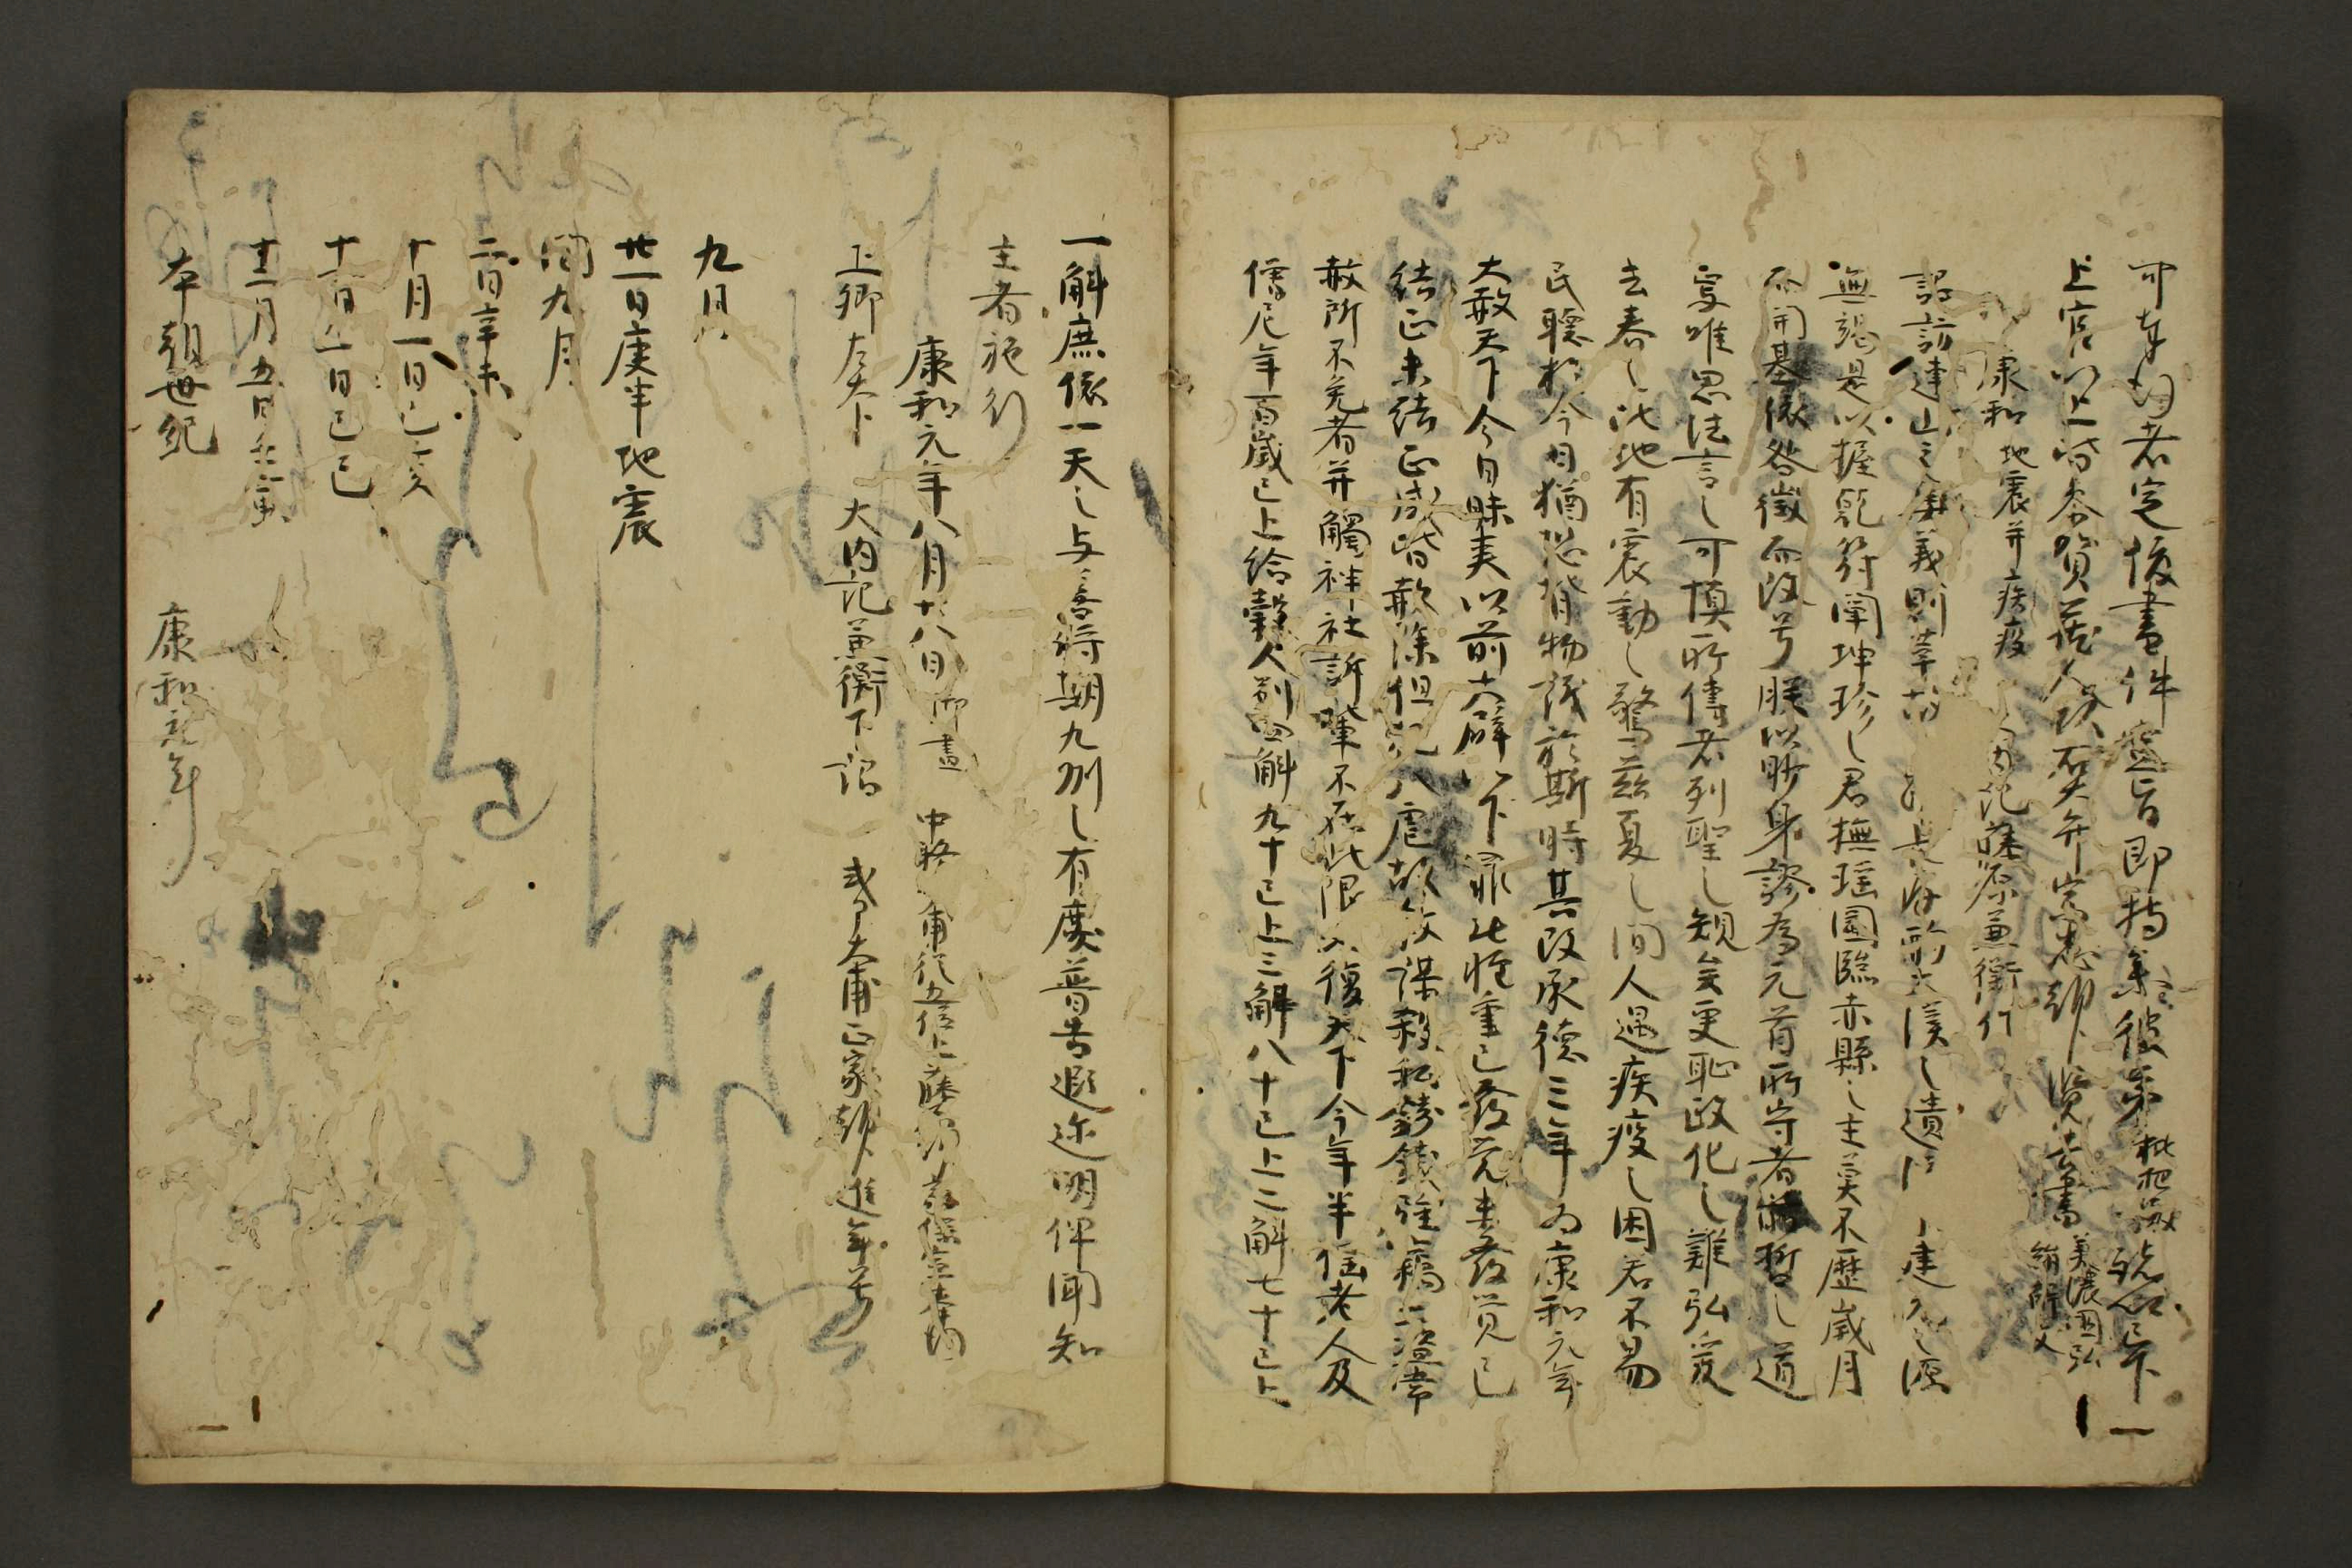 可奉勾者定後書件
上官以上皆参賀蔵人
美濃国弘
絹
康和 地震并疾疫 大内記藤原兼衡作
詔訪建 之 義則 漢之遺 建元之
無竭是以握乾符闡坤珍之君撫瑶図臨赤縣之主莫不歴歳月
而開基依咎徴而改号朕以眇身謬為元首所守者 哲之道
寔唯思法言之可慎所傳者列聖之規矣更恥政化之難弘爰
去春之比地有震動之驚茲夏之間人遇疾疫之困若不易
民聴於今日猶恐背物議於斯時其改承徳三年為康和元年
大赦天下今日昧爽以前大辟以下罪無軽重已發覚未發覚已
結正未結正咸皆赦除但犯八虐故殺謀殺私鋳銭強竊二盗常
赦所不免者并觸神社訴輩不在此限又復天下今年半徭老人及
僧尼年百歳已上給穀人別四斛九十已上三斛八十已上二斛七十已上
一斛庶依一天之与善将期九州之有慶普告遐迩明俾聞知
主者施行
康和元年八月廿八日 御畫 中務 輔従五位上藤
上卿左大下 大内記兼衡下詔 式了大輔正家朝臣進年号
九月
廿一日庚午地震
閏九月
二日辛未
十月一日己亥
十一月一日己巳
十二月五日壬寅
本朝世紀 康和元年